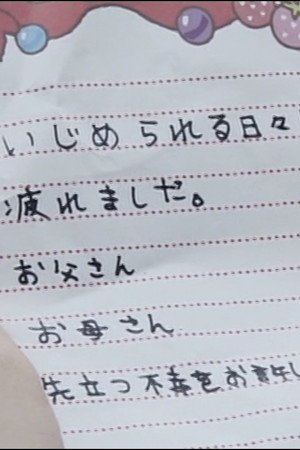 いじめられる日々
疲れました。
お父さん
お母さん
先立つ不幸をお許し